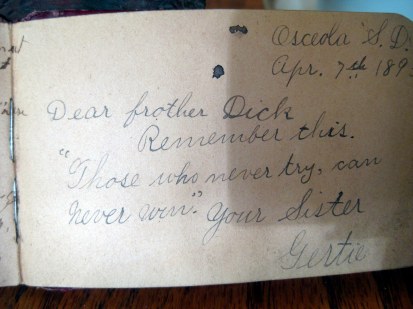 Osceola S.D.
Apr. 7th 189
Dear frother Dick
Remember this.
"Those who never try, can
never win." Your Sister
Gertie